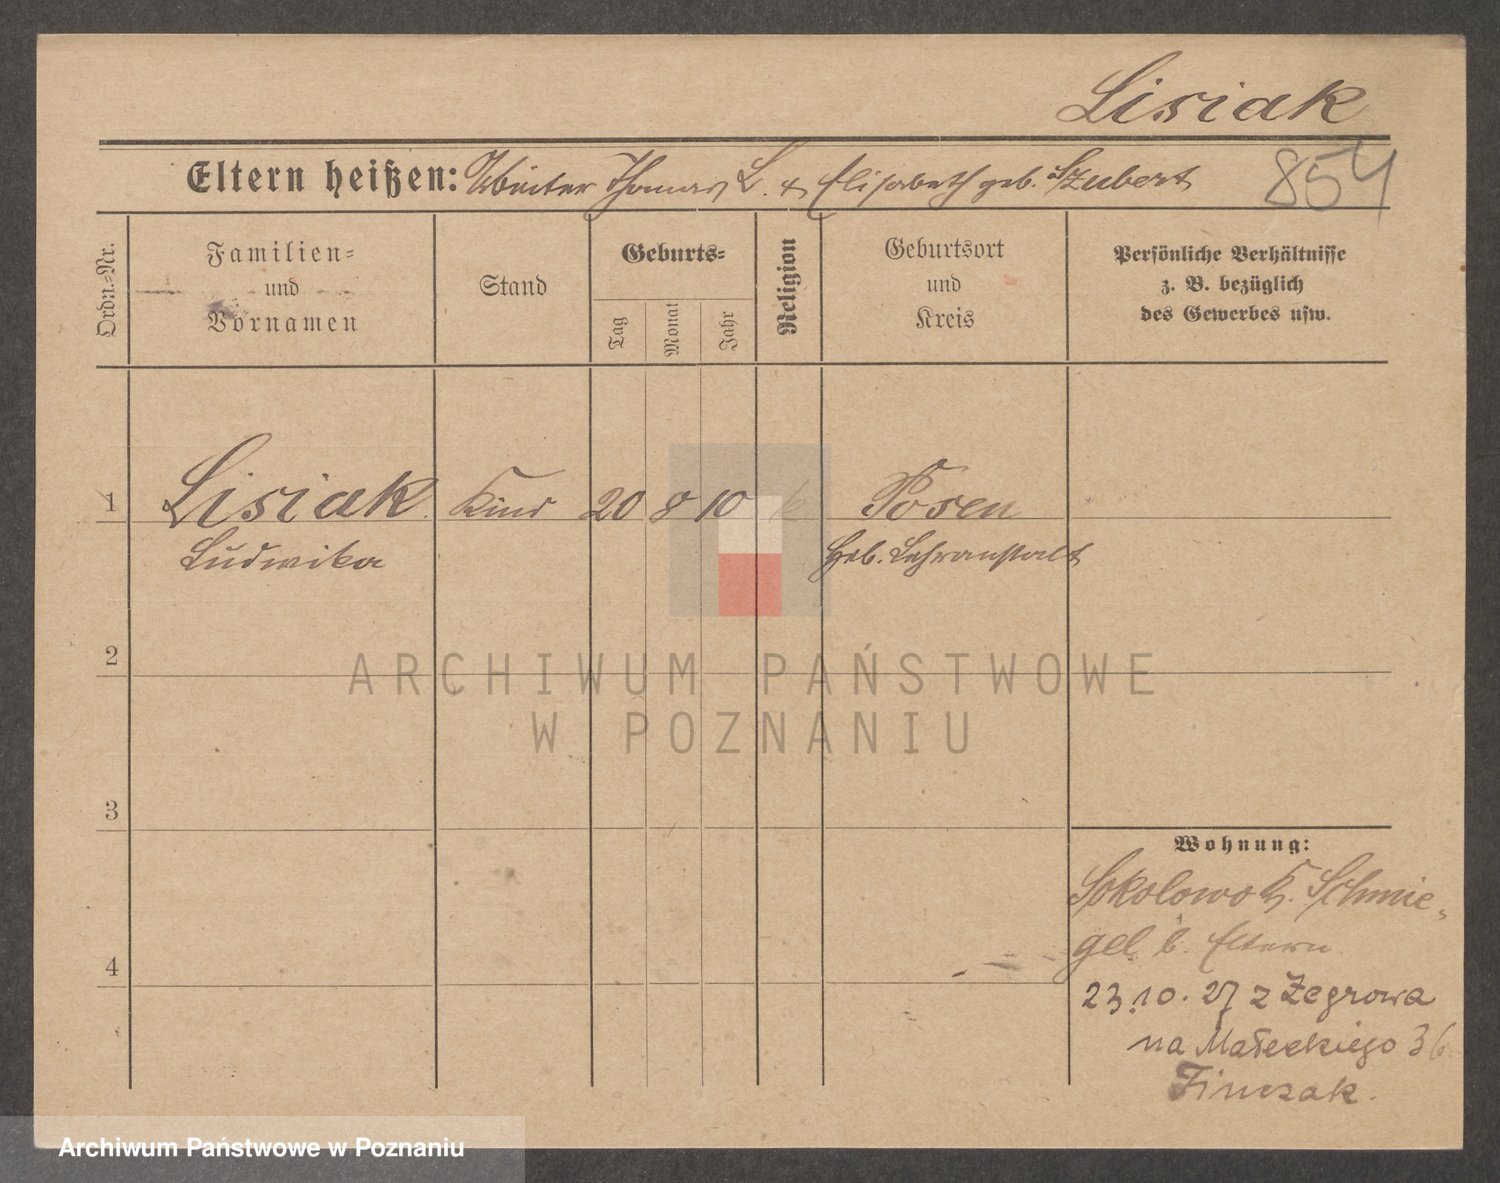 Lisiak
Eltern heißen: Arbeiter Thomas L. & Elisabeth geb. Szubert
854
Ordn.-Nr.
Familien-
und
Vornamen
Stand
Geburts-
Tag
Monat
Jahr
Religion
Geburtsort
und
Kreis
Persönliche Verhältnisse
z. B. bezüglich
des Gewerbes usw.
1 Lisiak Kind 20 8 10 k Posen
Ludwika Heb. Lehranstalt
2
ARCHIWUM PAŃSTWOWE
W POZNANIU
3
Wohnung:
Sokolowo K. Schmie-
gel b. Eltern
4
23.10.27 z Żegrowa
na Małeckiego 36
Archiwum Państwowe w Poznaniu